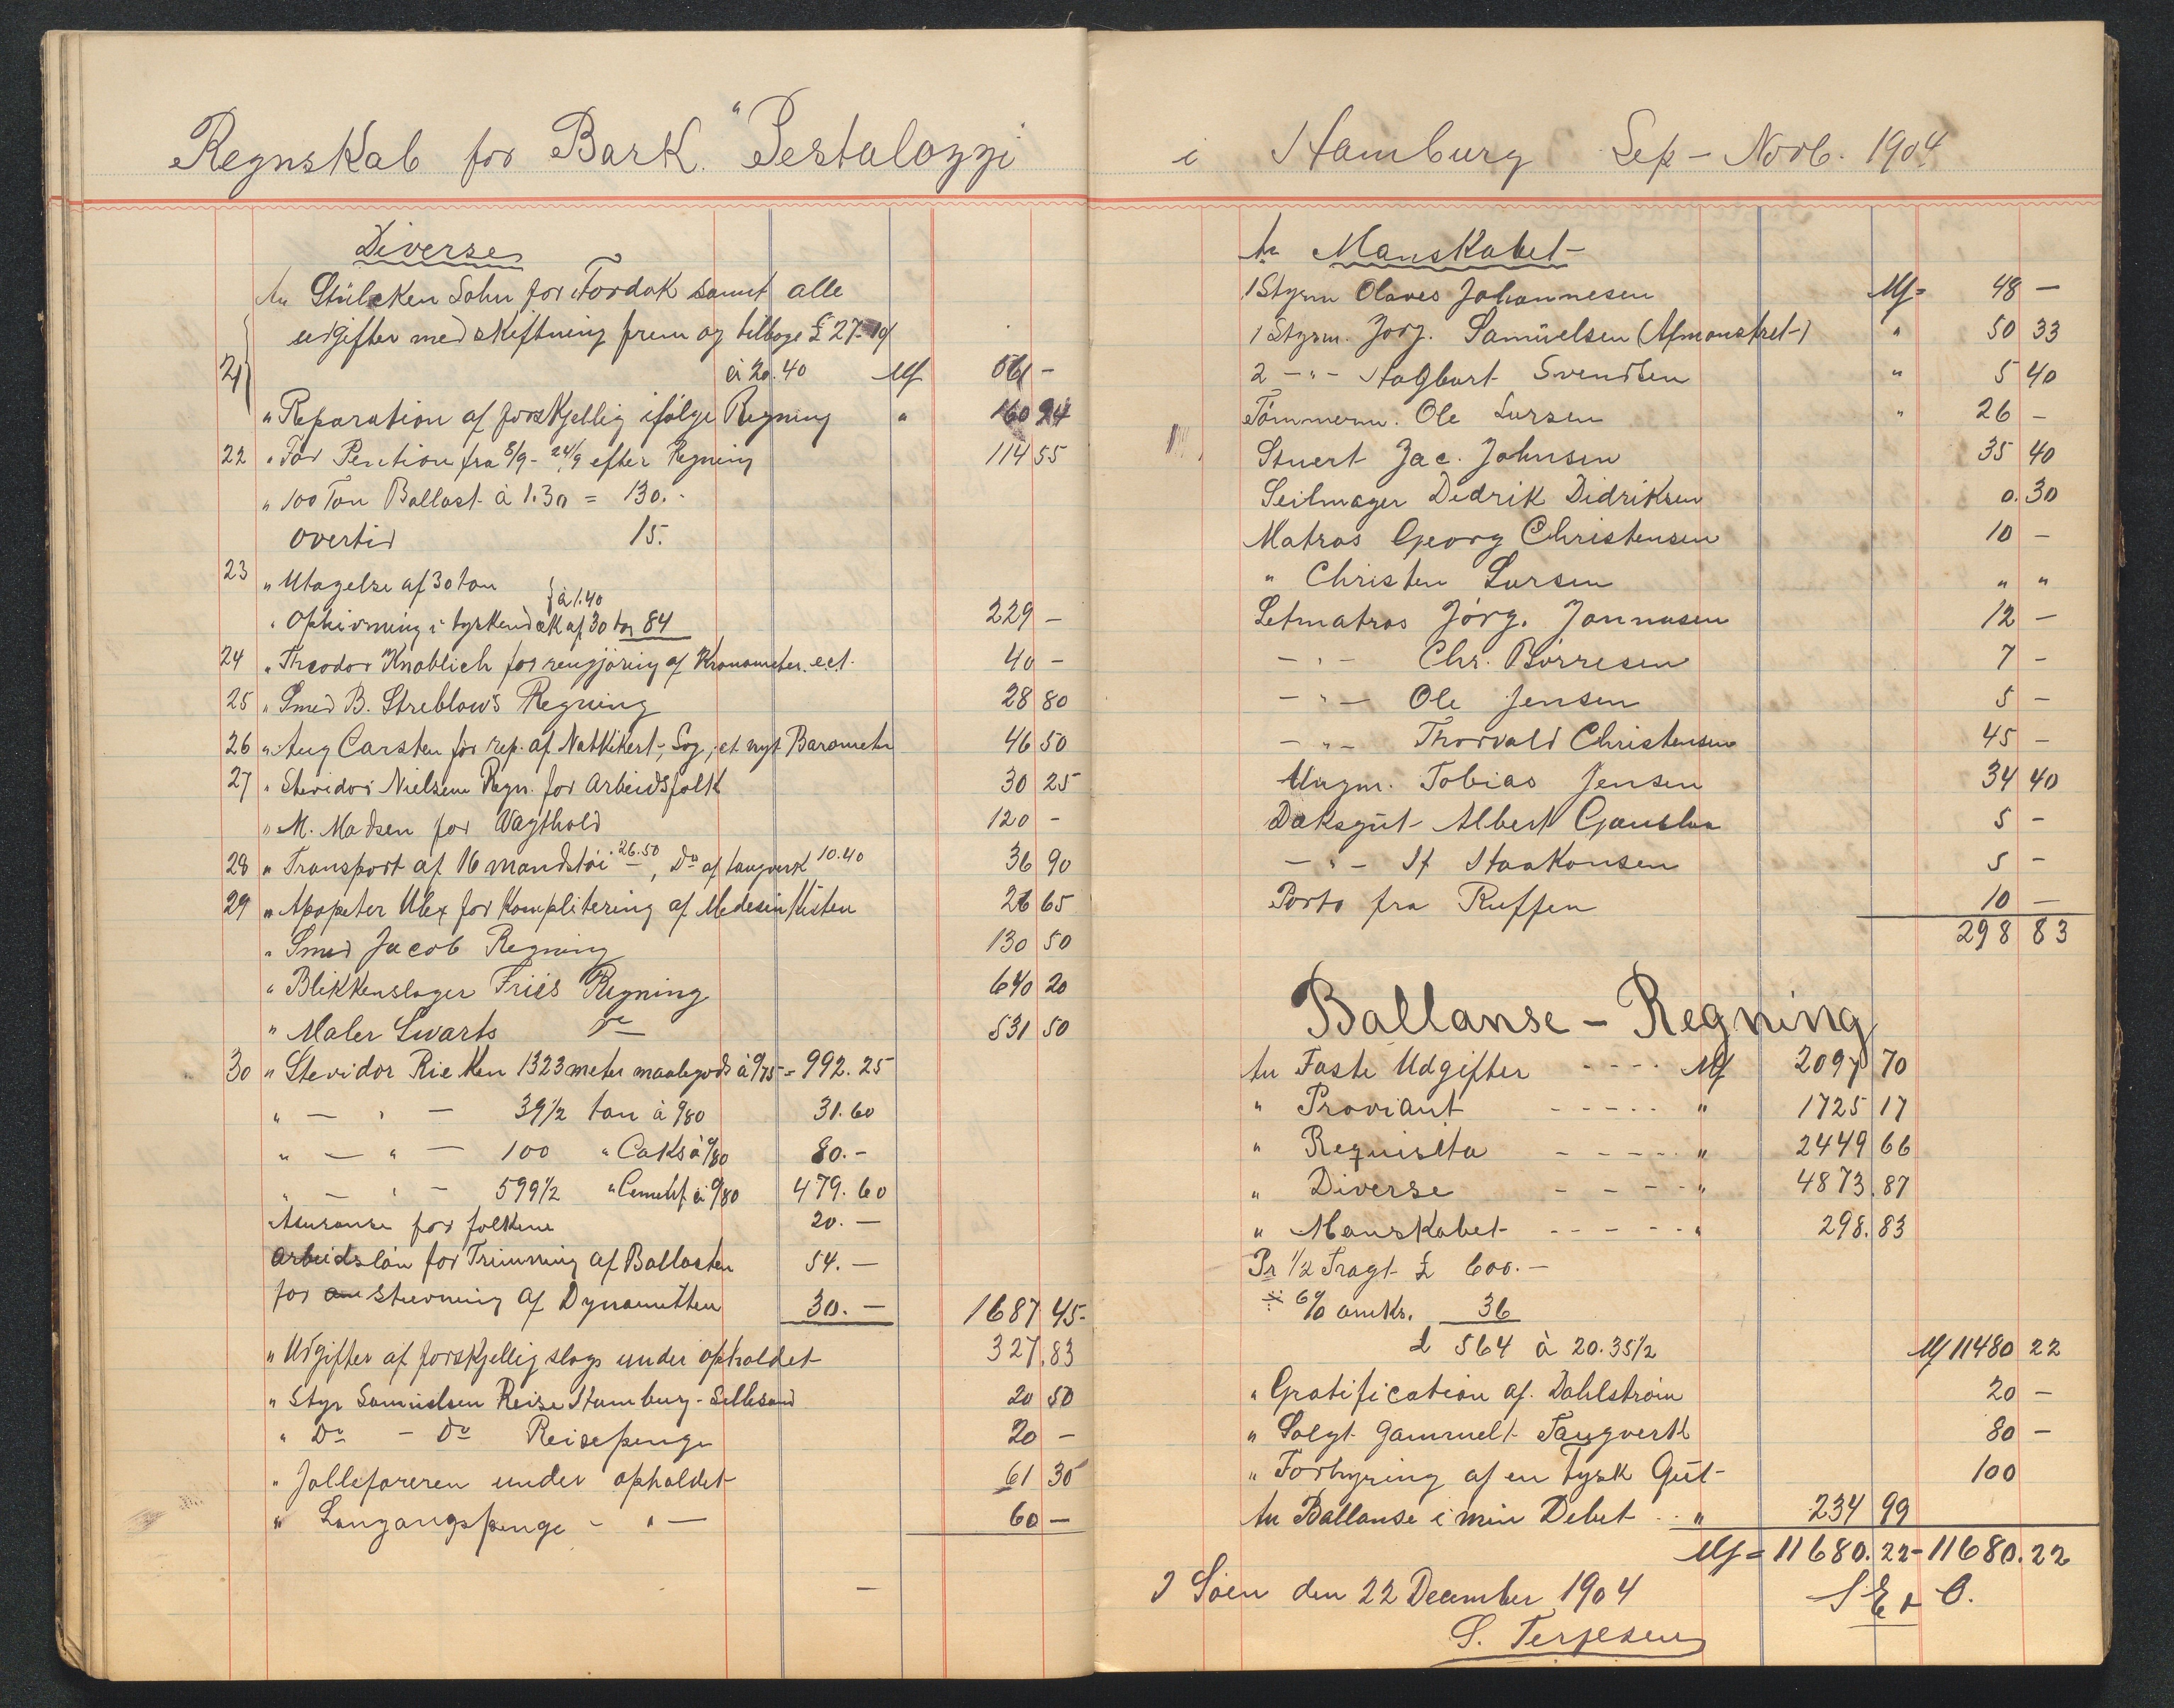 Regnskab for Bark. "Pestalozzi
Diverse
An Stülcken Sohn for Tördok samt alle
udgifter med skiftning frem og tilbage £ 27-10
21 à 20.40 M 561 -
" Reparation af forskjellig ifølge Regning " 160 24
22 " For Pention fra 8/9 - 24/9 efter Regning 114 55
" 100 Ton Ballast à 1.30 = 130.-
overtid 15.
23 " Utagelse af 30 ton } à 1.40
" Ophivning i tyskendæk af 30 ton 84 229 -
24 " Theodor Knoblich for rengjøring af Kronometer. ect. 40 -
25 " Smed B. Streblow's Regning 28 80
26 " Aug Carsten for rep. af Natkikert, Log, et nyt Barometer 46 50
27 " Stevidor Nielsens Regn. for Arbeidsfolk 30 25
" M. Madsen for Vagthold 120 -
28 " Transport af 16 mandstøi 26.50, Do af taugverk 10.40 36 90
29 " Apopeter Ulex for Komplitering af Medesin Kisten 26 65
" Smed Jacob Regning 130 50
" Blikkenslager Friis Regning 640 20
" Maler Swarts Do 531 50
30 " Stevidor Rieken 1323 meter maalegods à 0/75 = 992.25
" — " — 39 1/2 ton à 0/80 31.60
" — " — 100 " Caks à 0/80 80.-
" — " — 599 1/2 " Cement à 0/80 479.60
Asuranse for folkene 20.—
Arbeidsløn for Trimning af Ballasten 54.—
for stuvning af Dynamitten 30.— 1687 45-
" Udgifter af forskjellig slags under opholdet 327.83
" Styr Samuelsen Reise Hamburg - Lillesand 20 50
" Do - Do Reisepenge 20 -
" Jolleføreren under opholdet 61 30
" Langangspenge - " — 60 -
—
i Hamburg Sep - Novb. 1904
An Manskabet
1 Styrm Olaves Johannesen M= 48 —
1 Styrm. Jørg. Samuelsen (Afmønstret) " 50 33
2 - " - Hagbart Svendsen " 5 40
Tømmerm. Ole Larsen " 26 -
Stuert Jac. Johnsen 35 40
Seilmager Dedrik Didriksen 0.30
Matros Georg Christensen 10 -
" Christen Larsen " "
Letmatros Jørg. Jonnasen 12 -
- " - Chr. Børresen 7 -
- " - Ole Jensen 5 -
- " - Thorvald Christensen 45 -
Ungm. Tobias Jensen 34 40
Daksgut Albert 5 -
- " - Haakonsen 5 -
Porto fra Ruffen 10 —
298 83
Ballanse - Regning
An Faste Udgifter - - - - M 2097 70
" Proviant - - - - - " 1725 17
" Requisita - - - - - " 2449 66
" Diverse - - - - " 4873.87
" Manskabet - - - - - " 298.83
Pr 1/2 Fragt £ 600.—
÷ 6% omk. 36
£ 564 à 20.35 1/2 M 11480 22
" Gratification af. Dahlstrøm 20 -
" Solgt gammelt Taugverk 80 -
" Forhyring af en tysk Gut 100
An Ballanse i min Debet . . " 234 99
M = 11680.22 - 11680.22
I Søen den 22 December 1904 S E & O.
S. Terjesen